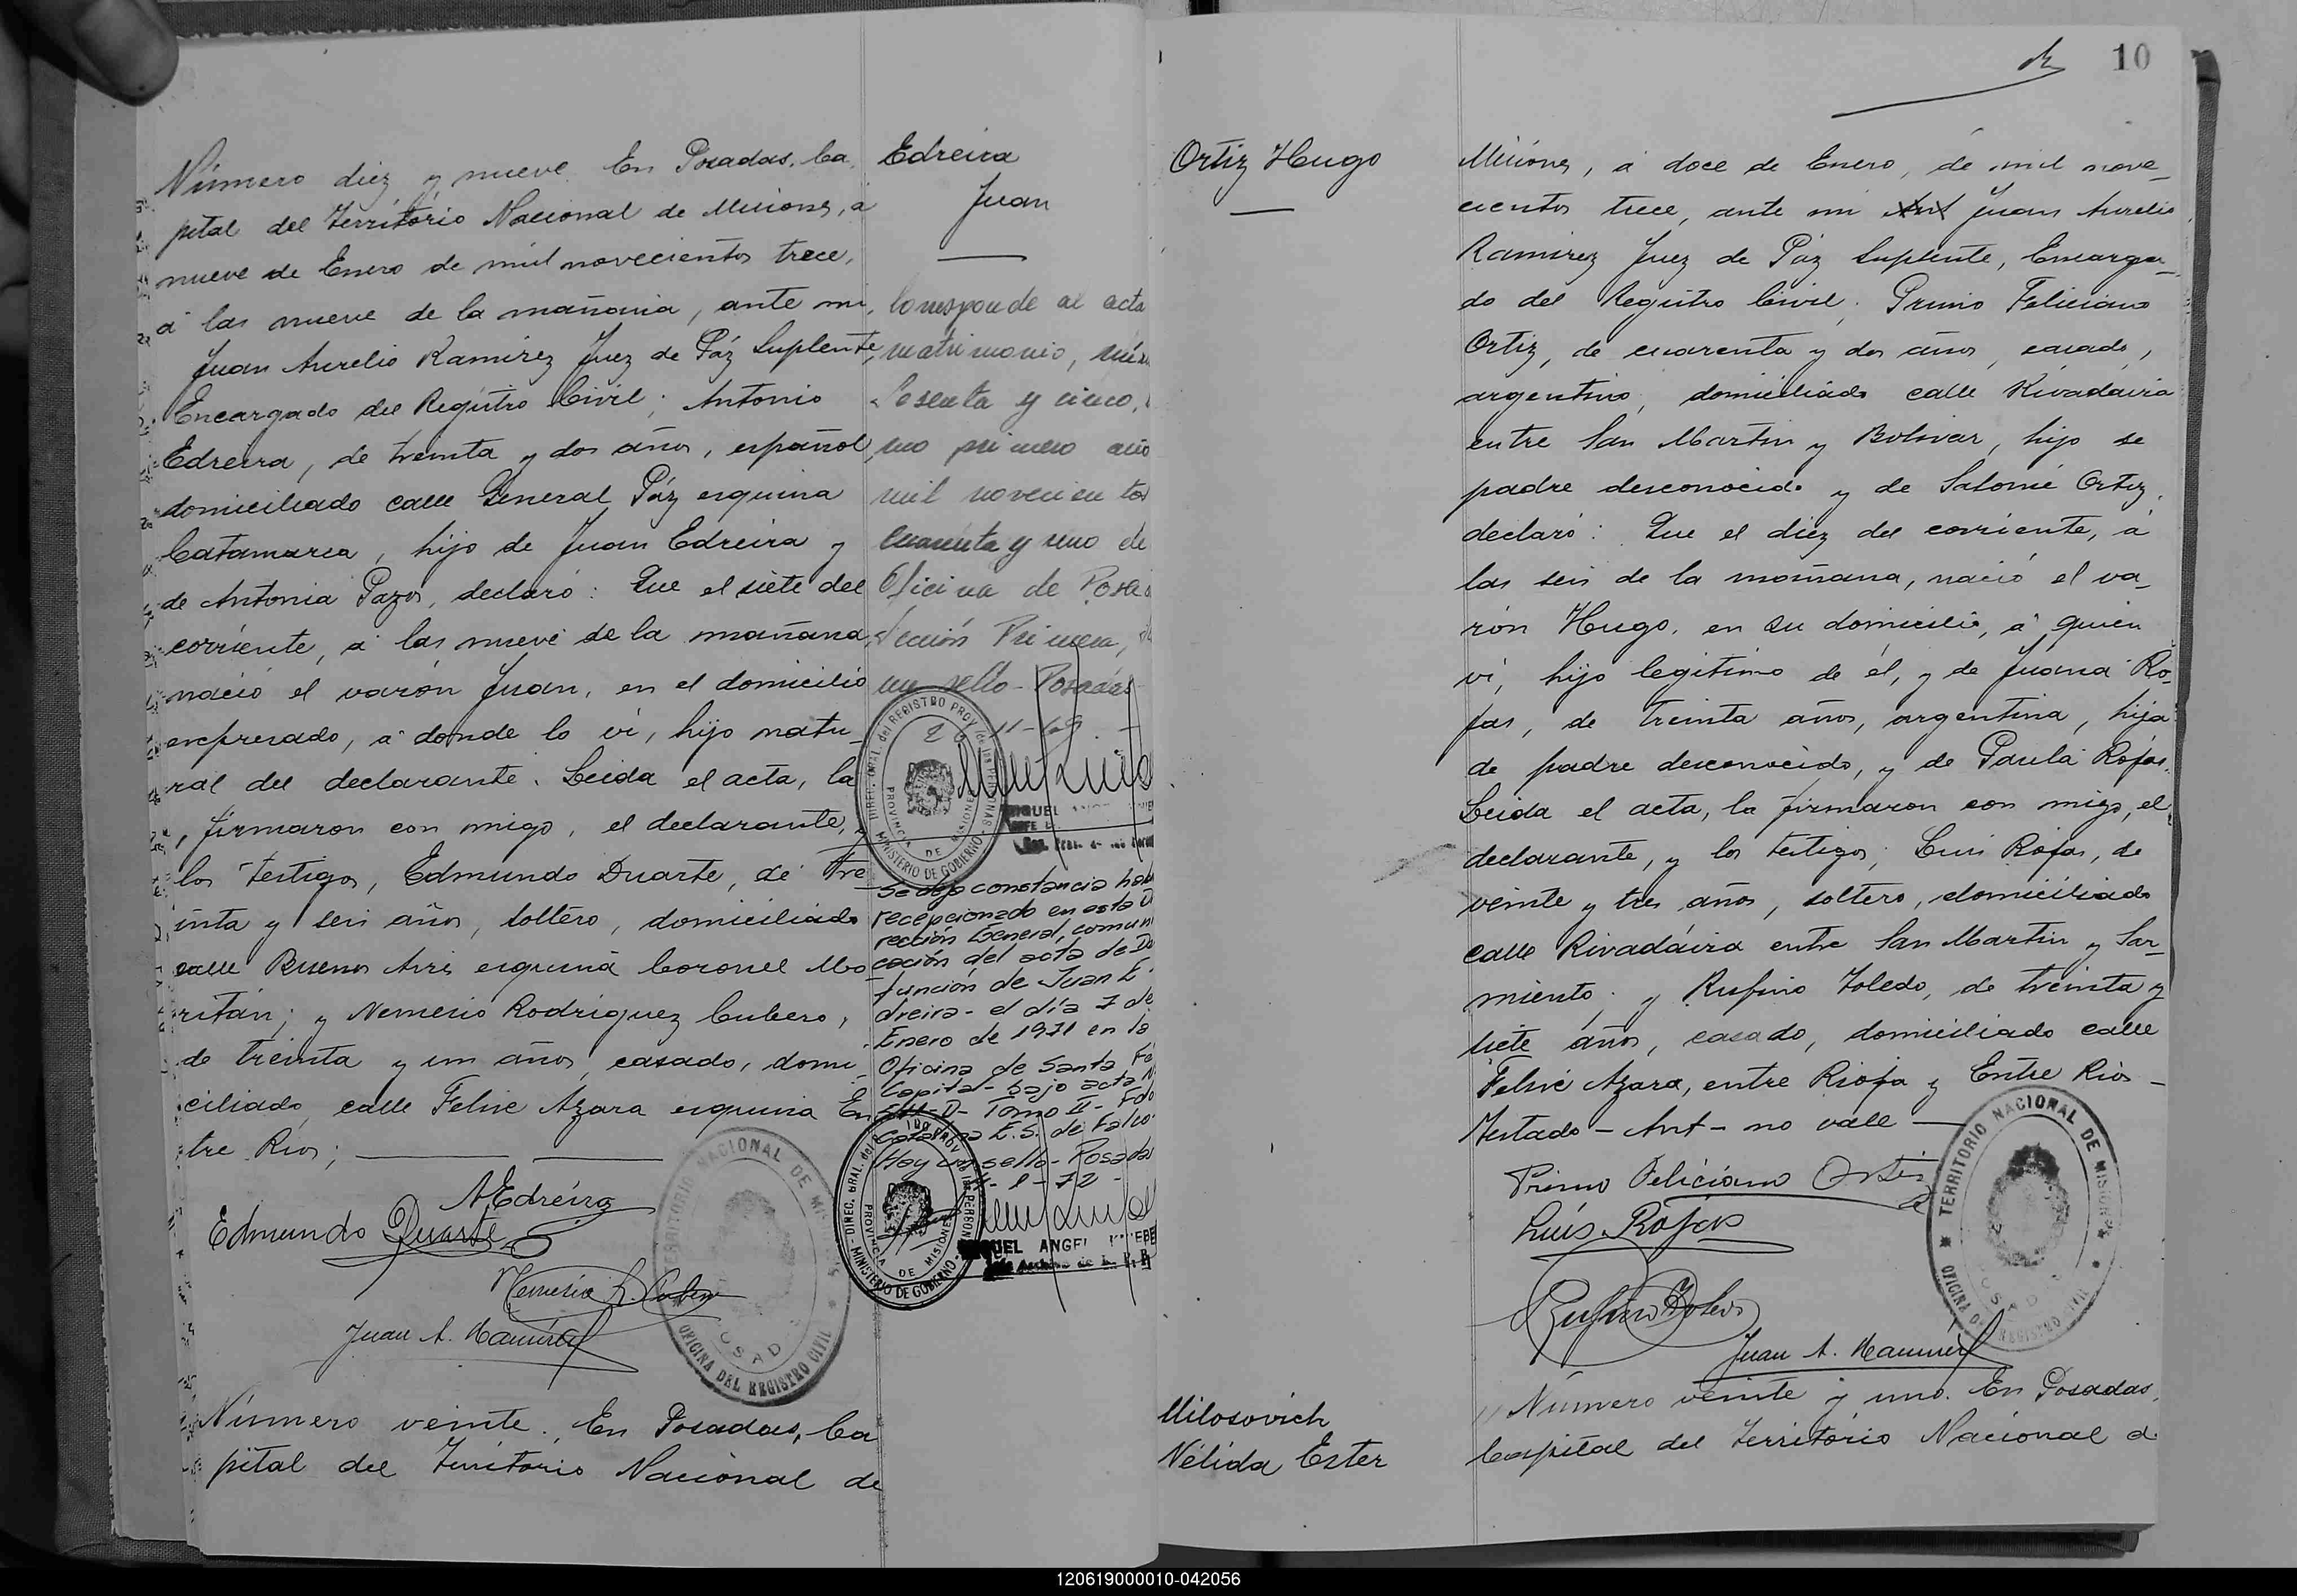 Número diez y nueve. En Posadas, Ca
pital del Territorio Nacional de Misiones, á
nueve de Enero de mil novecientos trece,
á las nueve de la mañana, ante mi,
Juan Aurelio Ramírez Juez de Páz Suplente,
Encargado del Registro Civil; Antonio
Edreira, de treinta y dos años, español,
domiciliado calle General Páz esquina
Catamarca, hijo de Juan Edreira y
de Antonia Pazos, declaró: Que el siete del
corriente, á las nueve de la mañana,
nació el varón Juan, en el domicilio
expresado, á donde lo ví, hijo natu_
ral del declarante. Leida el acta, la
, firmaron con migo, el declarante, y
los testigos, Edmundo Duarte, de tre_
inta y seis años, soltero, domiciliado
calle Buenos Aires esquina Coronel Mo_
ritán; y Nemesio Rodríguez Cubero,
de treinta y un años, casado, domi_
ciliado calle Felix Azara esquina En
tre Ríos;
A Edreira
Edmundo Duarte
Nemesio R. Cubero
Juan A. Ramírez
TERRITORIO NACIONAL DE MI
OFICINA DEL REGISTRO CIVIL
Número veinte. En Posadas, Ca
pital del Territorio Nacional de
Edreira
Juan
Corresponde al acta
matrimonio, núm
Sesenta y cinco,
mo primero año
mil novecientos
cuarenta y uno de
Oficina de Posad
Sección Primera,
un sello - Posadas
26 11-69
DIREC. GRAL. del REGISTRO PROV. de las PERSONAS
PROVINCIA DE MISIONES
MINISTERIO DE GOBIERNO
Se deja constancia hab
recepcionado en esta D
rección General, comuni
cación del acta de De
función de Juan E
dreira - el día 7 de
Enero de 1971 en la
Oficina de Santa Fe
Capital - bajo acta N
-D- Tomo II - Fdo
E.S. de Falco.
Hay un sello - Posadas
-1-72-
PROVINCIA DE MISIONES
MINISTERIO DE GOBIERNO
MIGUEL ANGEL
10
Ortiz Hugo
Misiones, á doce de Enero, de mil nove_
cientos trece, ante mi Ant Juan Aurelio
Ramirez Juez de Páz Suplente, Encarga_
do del Registro Civil; Primo Feliciano
Ortiz, de cuarenta y dos años, casado,
argentino, domiciliado calle Rivadavia
entre San Martin y Bolivar, hijo de
padre desconocido y de Salomé Ortiz,
declaró: Que el diez del corriente, á
las seis de la mañana, nació el va_
rón Hugo, en su domicilio, á quien
ví, hijo legítimo de él, y de Juana Ro_
jas, de treinta años, argentina, hija
de padre desconocido, y de Paula Rojas.
Leida el acta, la firmaron con migo, el
declarante, y los testigos; Luis Rojas, de
veinte y tres años, soltero, domiciliado
calle Rivadavia entre San Martin y Sar_
miento; y Rufino Toledo, de treinta y
siete años, casado, domiciliado calle
Felix Azara, entre Rioja y Entre Rios -
Testado - Ant - no vale -
Primo Feliciano Ortiz
Luis Rojas
Rufino Toledo
Juan A. Ramírez
TERRITORIO NACIONAL DE MISIONES
OFICINA DEL REGISTRO CIVIL
Milosovich
Nélida Ester
Número veinte y uno. En Posadas,
Capital del Territorio Nacional d
120619000010-042056